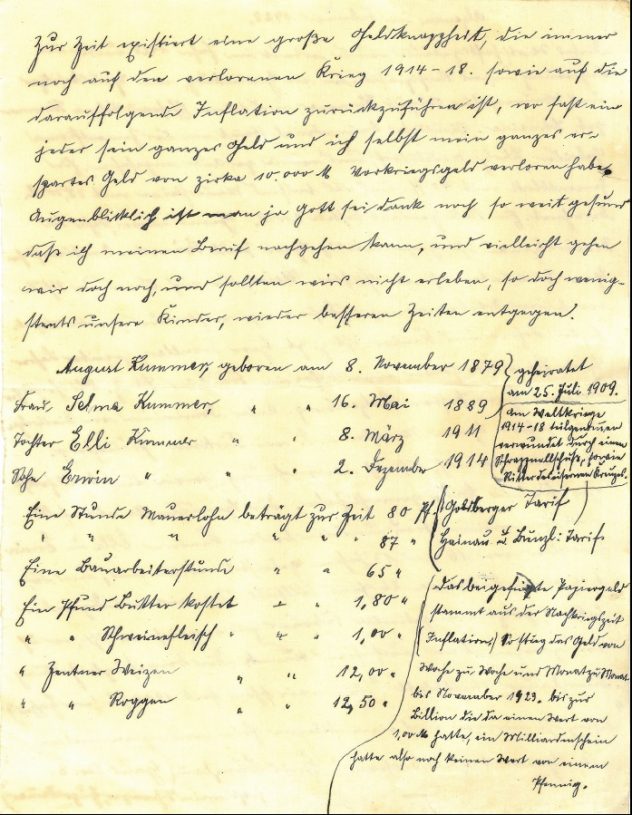 Zur Zeit existiert eine große Geldknappheit, die immer
noch auf den verlorenen Krieg 1914-18. sowie auf die
darauffolgende Inflation zurückzuführen ist, wo fast ein
jeder sein ganzes Geld und ich selbst mein ganzes er-
spartes Geld von zirka 10.000 M Vorkriegsgeld verloren habe.
Augenblicklich ist man ja Gott sei dank noch so weit gesund
daß ich meinen Beruf nachgehen kann, und vielleicht gehen
wir doch noch, und sollten wirs nicht erleben, so doch wenig-
stens unsere Kinder, wieder besseren Zeiten entgegen.
August Kummer, geboren am 8. November 1879 } geheiratet
am 25. Juli 1909.
Frau, Selma Kummer, " " 16. Mai 1889
Tochter Elli Kummer " " 8. März 1911
Sohn Erwin " " " 2. Dezember 1914
Am Weltkriege
1914-18 teilgenommen
verwundet durch einen
Schrapnellschuß, sowie
Ritter des eisernen Kreuzes.
Eine Stunde Maurerlohn beträgt zur Zeit 80 Pf. (Goldberger Tarif
" " " " " " 87 " (Hainau u. Bunzl: Tarif
Eine Bauarbeiterstunde " " 65 "
Ein Pfund Butter kostet " " 1,80 "
" " Schweinefleisch " " 1,00 "
" Zentner Weizen " " 12,00 "
" " Roggen " " 12,50 "
Das beigefügte Papiergeld
stammt aus der Nachkriegszeit
(Inflation,) So stieg das Geld von
Woche zu Woche und Monat zu Monat
bis November 1923. bis zur
Billion die da einen Wert von
1,00 M hatte, ein Milliardenschein
hatte also noch keinen Wert von einem
Pfennig.